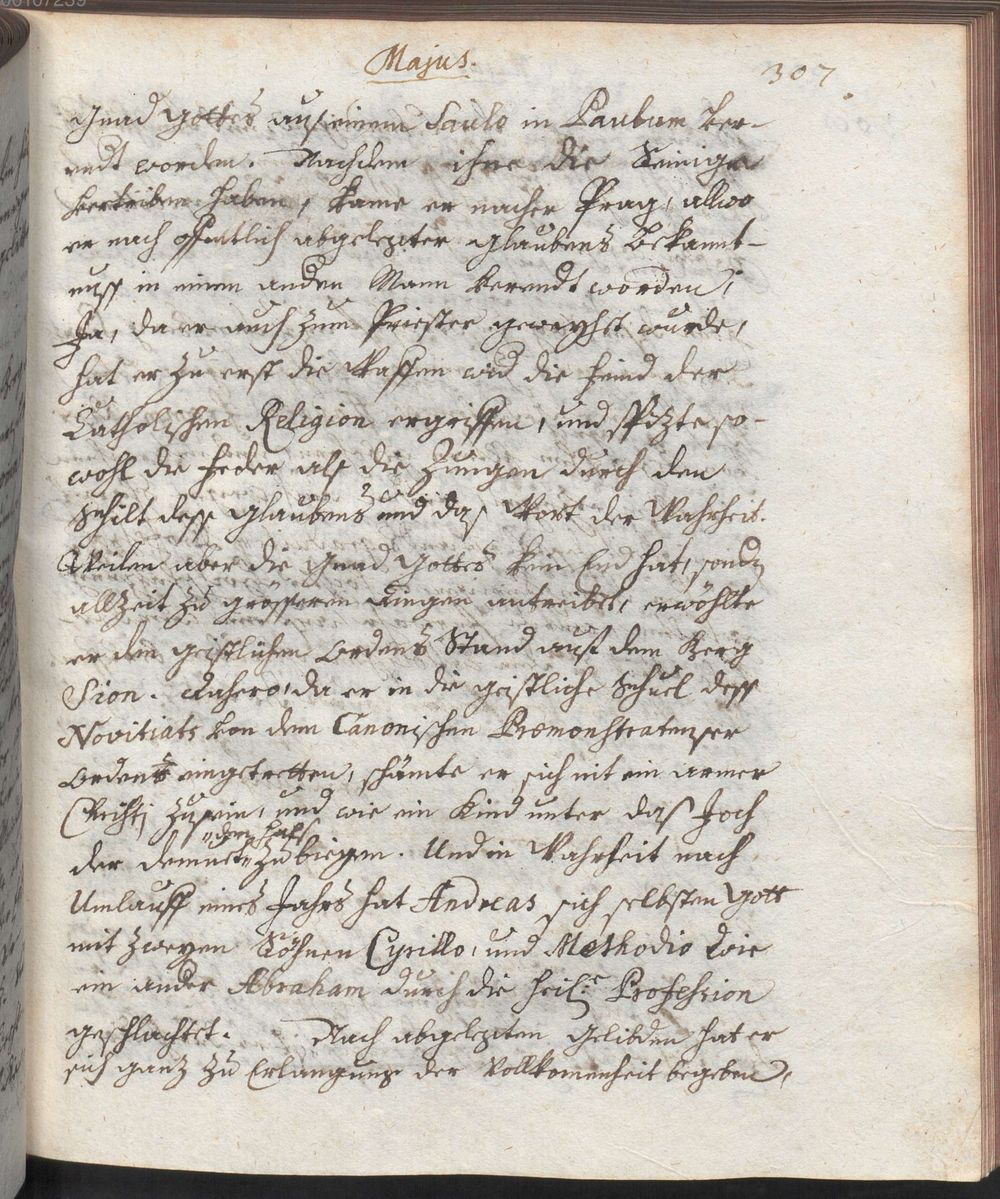 00107239
Majus.
307
Gnad Gottes auß einem Saulo in Paulum ver-
endt worden. Nachdem ihne die Seinige
vertriben haben, kame er nacher Prag, allwo
er nach offentlich abgelegter Glaubens Bekannt-
nuß in einen anden Mann verendt worden,
Ja, da er auch zum Priester geweyhet wurde,
hat er zu erst die Waffen wid die feind der
Catholischen Religion ergriffen, und spizte so-
wohl die feder alß die Zungen durch den
Schilt deß Glaubens und daß Wort der Wahrheit.
Weilen aber die Gnad Gottes kein End hat, sondn
allzeit zu grösseren dingen antreibet, erwöhlte
er den geistlichen Ordens Stand auß dem Berg
Sion. Dahero, da er in die geistliche Schuel deß
Novitiats von dem Canonischen Præmonstratenser
Ordens eingetretten, schämte er sich nit ein armer
Christi zu sein, und wie ein Kind unter daß Joch
den Halß
der demuth zu biegen. Und in Wahrheit nach
Umlauff eines Jahrs hat Andreas sich selbsten Gott
mit zweyen Söhnen Cyrillo, und Methodio wie
ein ander Abraham durch die heil: Profession
geschlachtet. Nach abgelegten Gelibden hat er
sich ganz zu Erlangung der Vollkomenheit begeben,